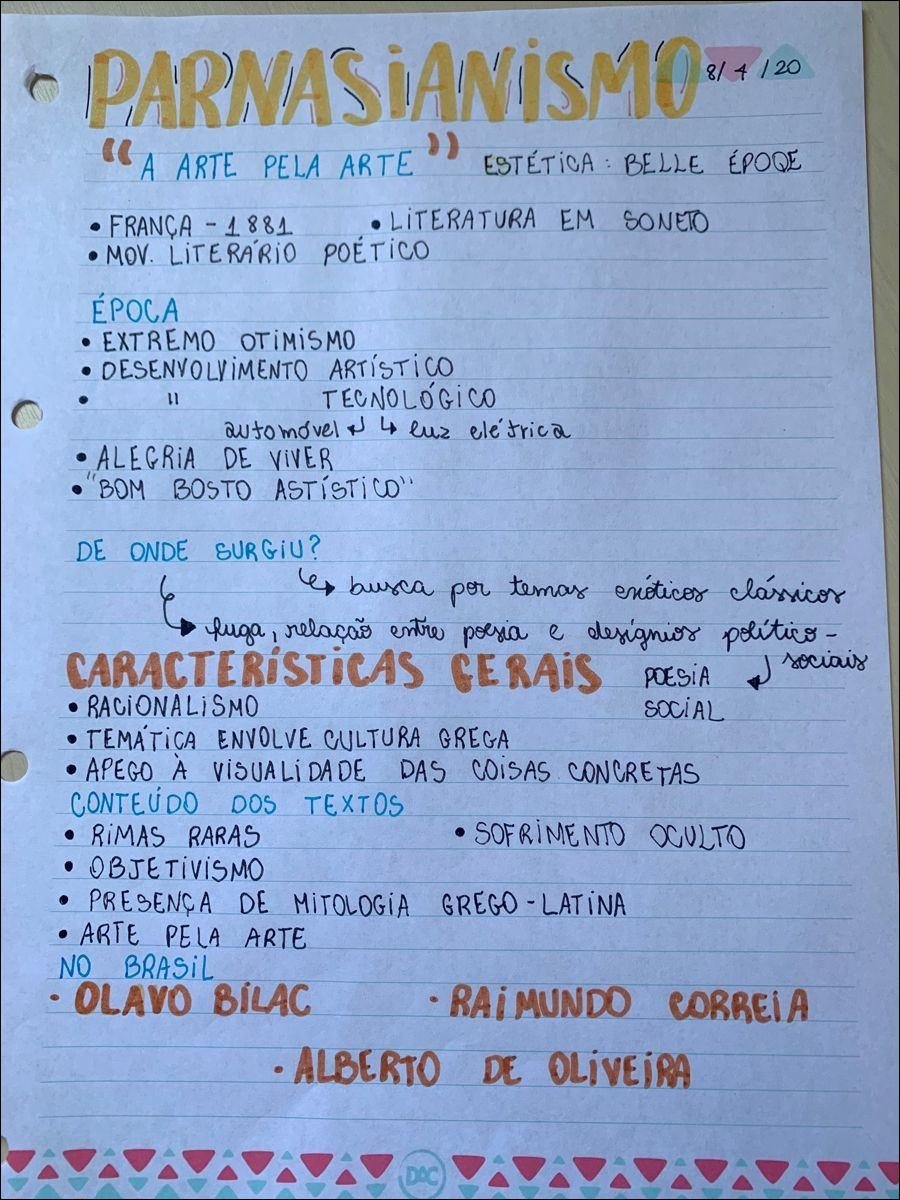 PARNASIANISMO 8/4/20
"A ARTE PELA ARTE" ESTÉTICA: BELLE ÉPOQE
• FRANÇA - 1881 • LITERATURA EM SONETO
• MOV. LITERÁRIO POÉTICO
ÉPOCA
• EXTREMO OTIMISMO
• DESENVOLVIMENTO ARTÍSTICO
• " TECNOLÓGICO
automóvel ↵ ↳ luz elétrica
• ALEGRIA DE VIVER
• "BOM BOSTO ASTÍSTICO"
DE ONDE SURGIU?
↳ busca por temas exóticos clássicos
↳ fuga, relação entre poesia e desígnios político-
sociais
CARACTERÍSTICAS GERAIS POESIA
• RACIONALISMO SOCIAL
• TEMÁTICA ENVOLVE CULTURA GREGA
• APEGO À VISUALIDADE DAS COISAS CONCRETAS
CONTEÚDO DOS TEXTOS
• RIMAS RARAS • SOFRIMENTO OCULTO
• OBJETIVISMO
• PRESENÇA DE MITOLOGIA GREGO-LATINA
• ARTE PELA ARTE
NO BRASIL
• OLAVO BILAC • RAIMUNDO CORREIA
• ALBERTO DE OLIVEIRA
DAC